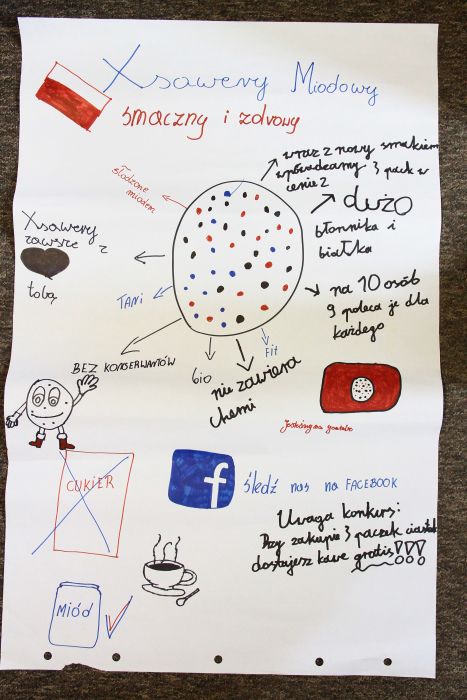 Xsawery Miodowy
smaczny i zdrowy
słodzone
miodem
wraz z nowy smakiem
wprowadzamy 3 pack w
cenie 2
dużo
błonnika i
białka
Xsawery
zawsze z
tobą
TANi
na 10 osób
9 poleca je dla
każdego
BEZ KONSERWANTÓW
bio
nie zawiera
chemi
Fit
jesteśmy na youtube
CUKIER
f
śledź nas na FACEBOOK
Uwaga konkurs:
Przy zakupie 3 paczek ciastek
dostajesz kawe gratis!!!
MIÓD